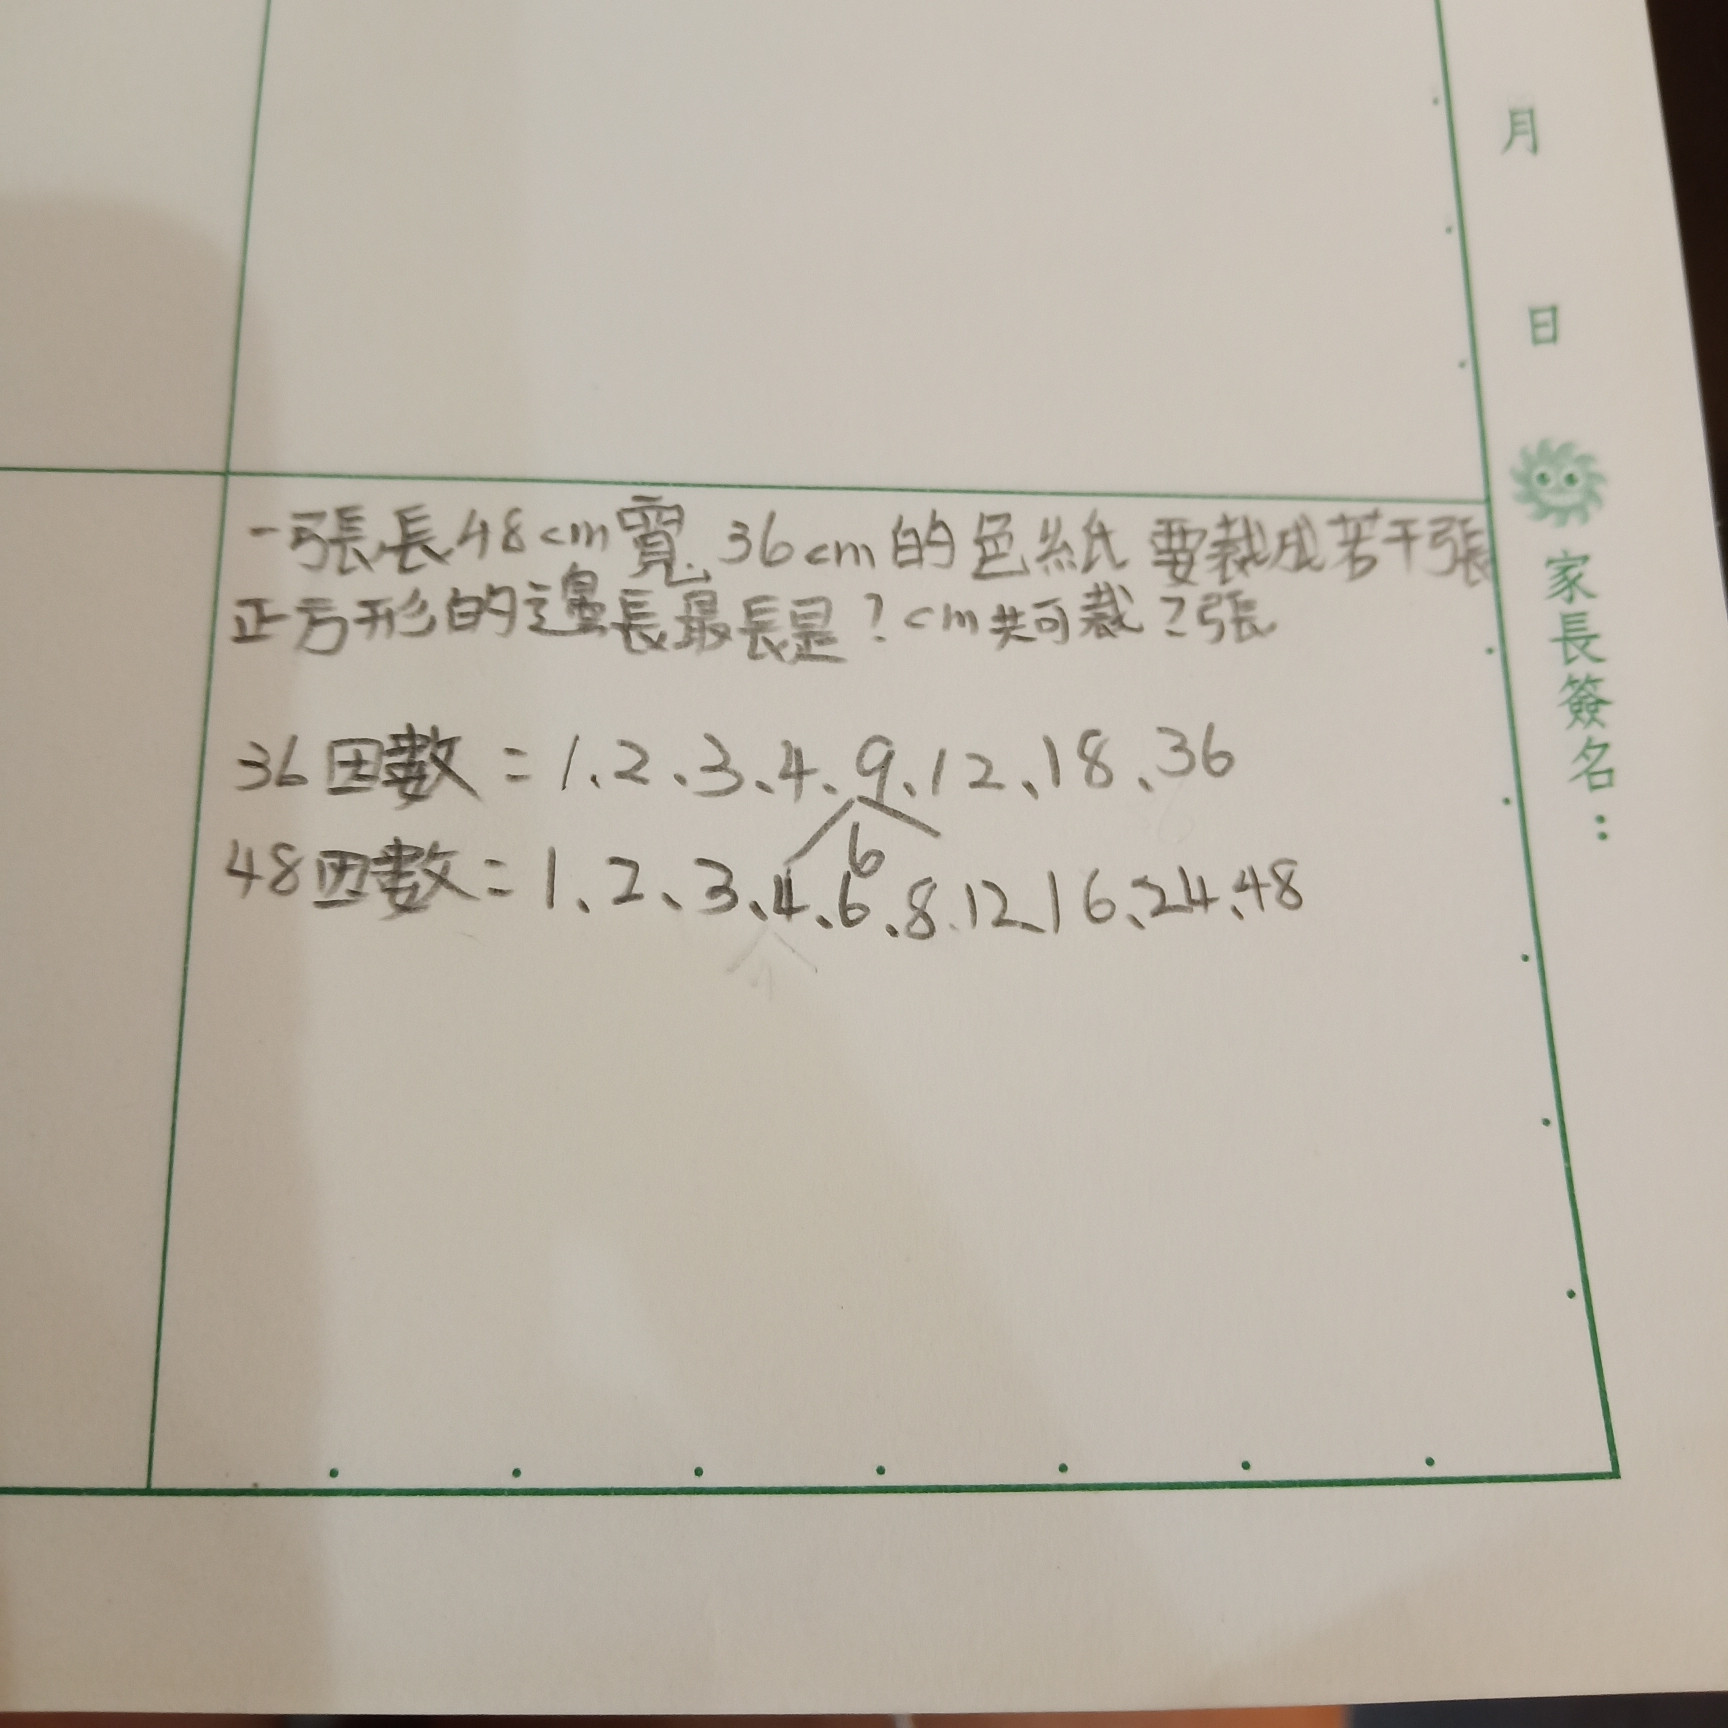 月 日 家長簽名：
一張長48cm寬36cm的色紙要裁成若干張
正方形的邊長最長是?cm共可裁?張
36因數=1、2、3、4、9、12、18、36
6
48因數=1、2、3、4、6、8、12、16、24、48